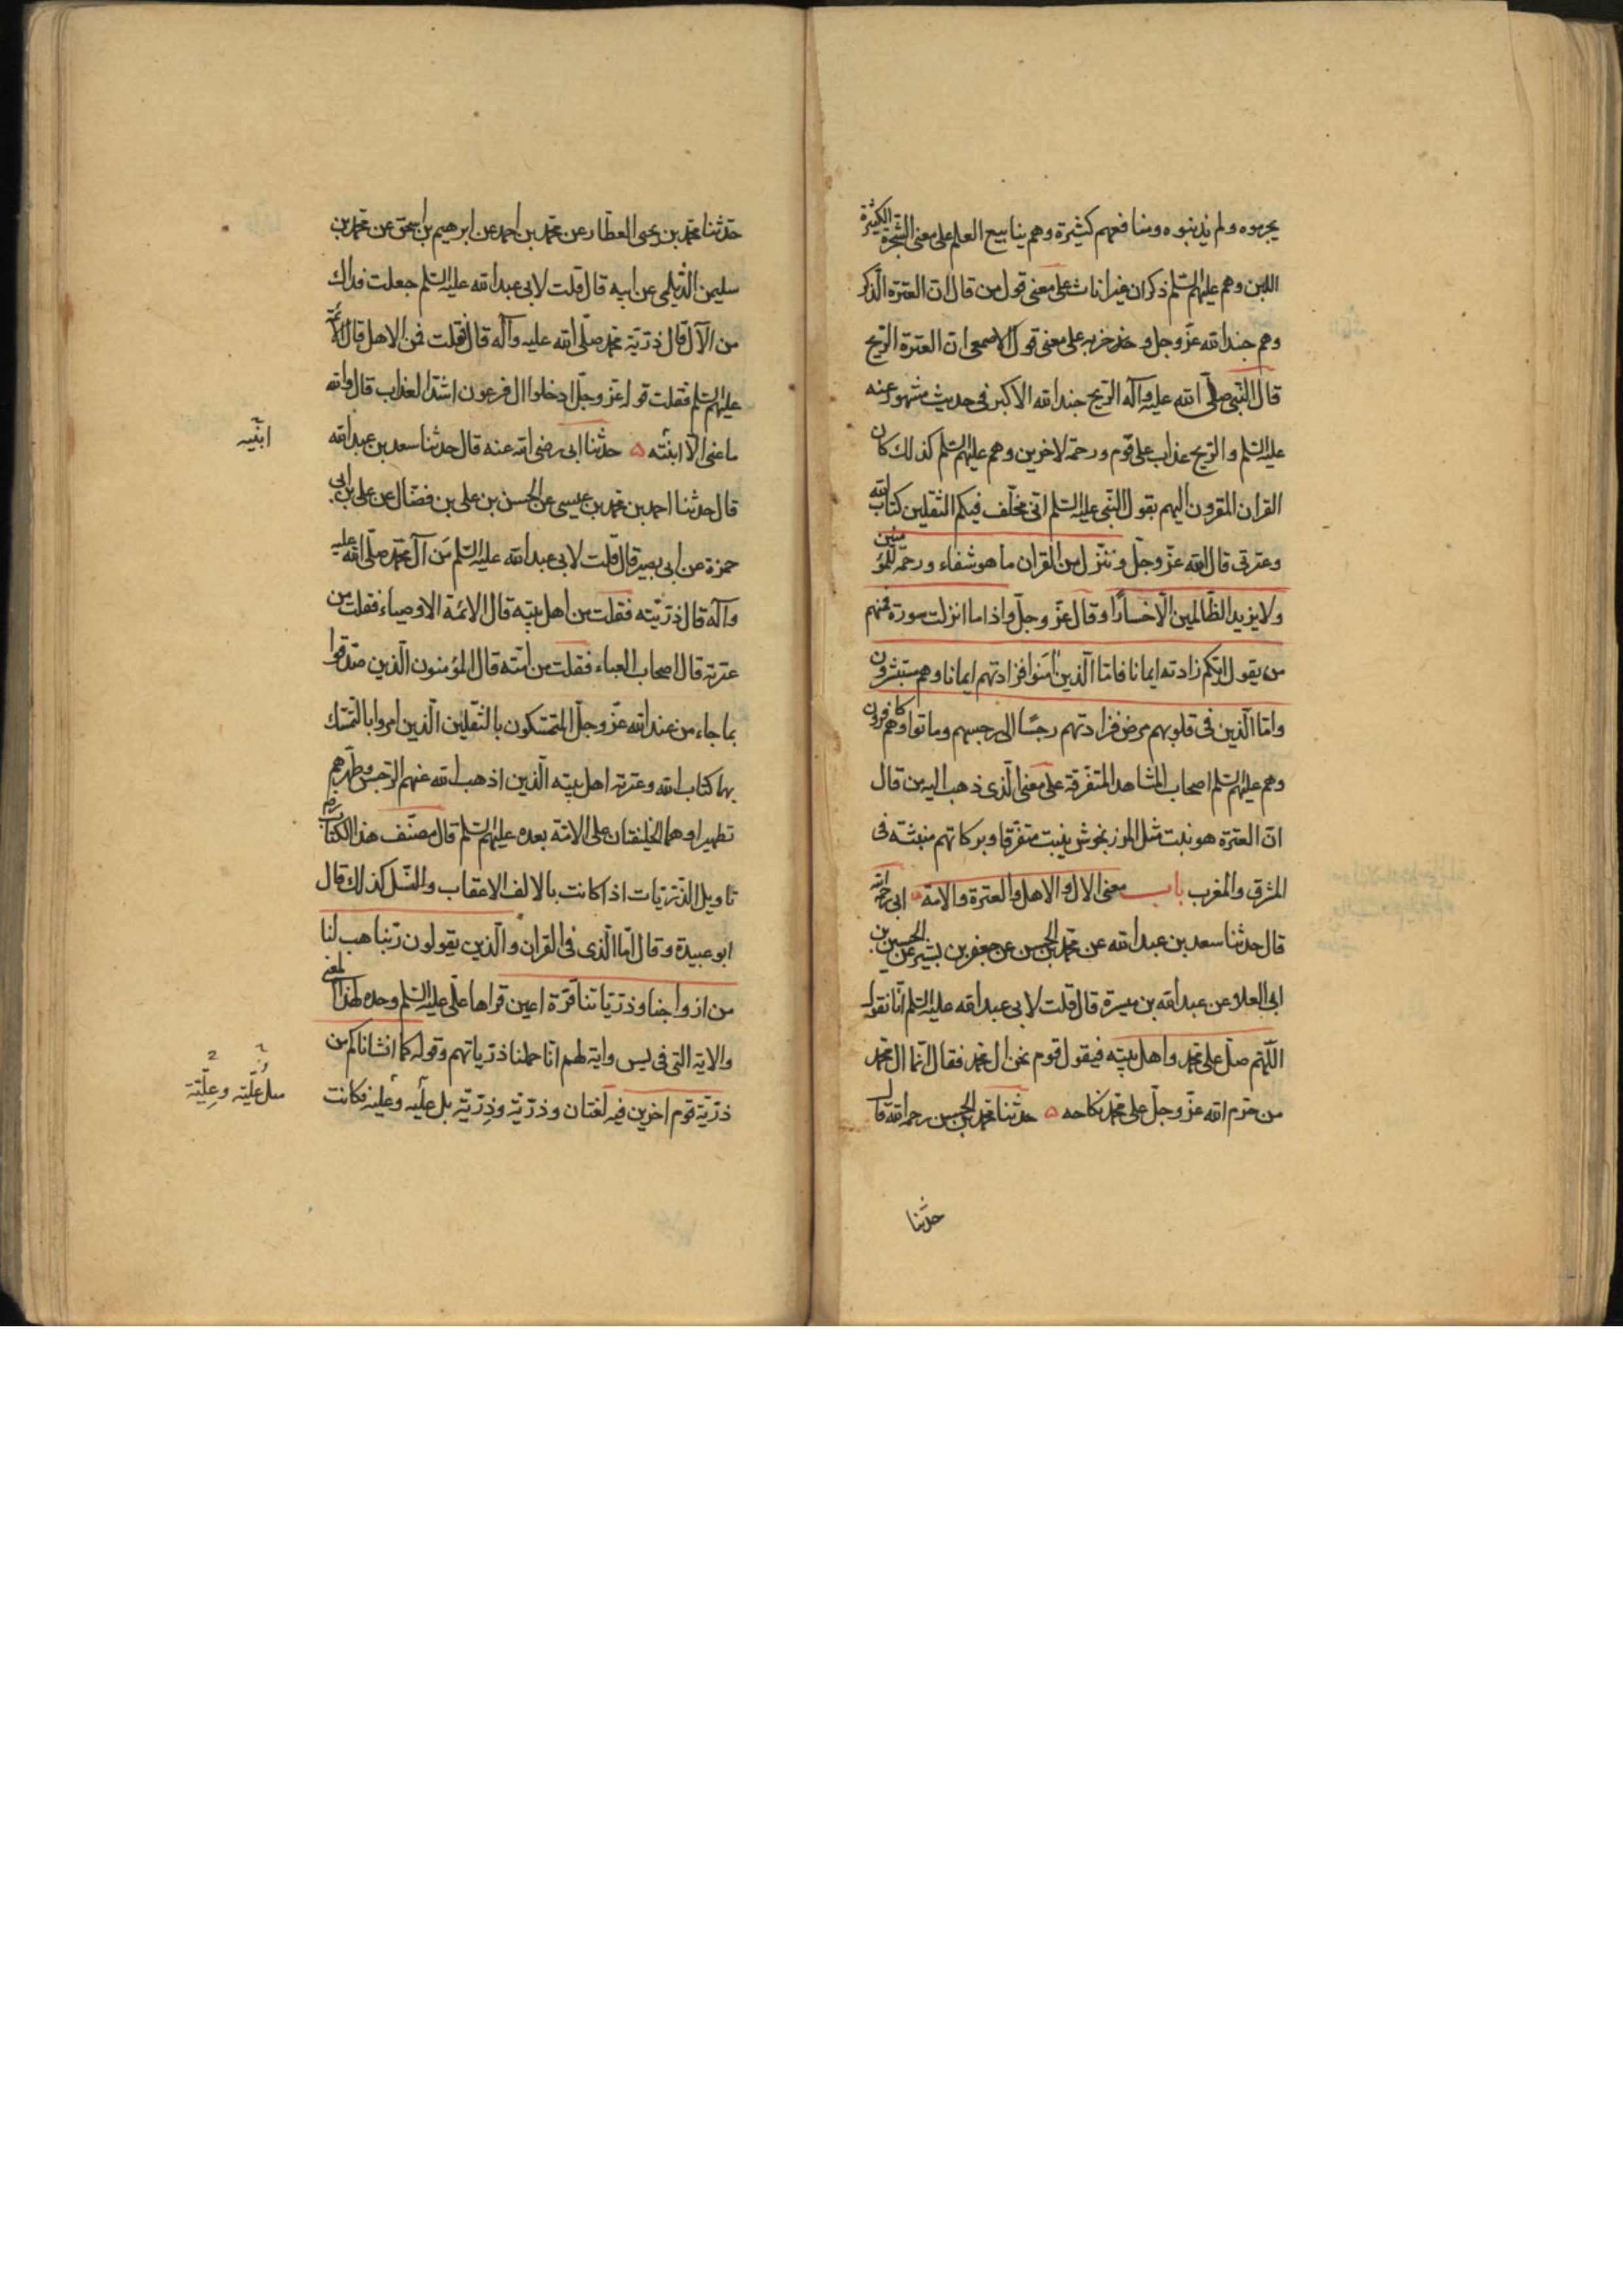 يجرموه ولم يذنبوه ومنافعهم كثيرة وهم ينابيع العلم على معنى الشجرة الكثيرة
اللبن وهم عليهم السلم ذكران غير اناث على معنى قول من قال ان العترة الذكر
وهم جند الله عز وجل و حزبه على معنى قول الاصمعى ان العترة الريح
قال النبى صلى الله عليه وآله الريح جند الله الاكبر فى حديث مشهور عنه
عليه السلم والريح عذاب على قوم ورحمة لاخرين وهم عليهم السلم كذلك كان
القران المقرون اليهم بقول النبى عليه السلم انى مخلف فيكم الثقلين كتاب الله
وعترتى قال الله عز وجل وننزل من القران ما هو شفاء ورحمة للمؤمنين
ولا يزيد الظالمين الا خسارًا وقال عز وجل واذا ما انزلت سورة فمنهم
من يقول ايكم زادته ايمانا فاما الذين امنوا فزادتهم ايمانا وهم يستبشرون
واما الذين فى قلوبهم مرض فزادتهم رجسًا الى رجسهم وماتوا وهم كافرون
وهم عليهم السلم اصحاب المشاهد المتفرقة على معنى الذى ذهب اليه من قال
ان العترة هو نبت مثل المرزنجوش ينبت متفرقا وبركاتهم منبثة فى
المشرق والمغرب باب معنى الال والاهل والعترة والامة ابى رحمه الله
قال حدثنا سعد بن عبد الله عن محمد بن الحسن عن جعفر بن بشير عن الحسين بن
ابى العلا عن عبد الله بن ميسرة قال قلت لابى عبد الله عليه السلم انا نقول
اللهم صل على محمد واهل بيته فيقول قوم نحن ال محمد فقال انما ال محمد
من حرم الله عز وجل على محمد نكاحه ۵ حدثنا محمد بن الحسن رحمه الله قال
حدثنا
حدثنا محمد بن يحيى العطار عن محمد بن احمد عن ابرهيم بن اسحق عن محمد بن
سليمن الديلمى عن ابيه قال قلت لابى عبد الله عليه السلم جعلت فداك
من الآل قال ذرية محمد صلى الله عليه وآله قال فقلت فمن الاهل قال الائمة
عليهم السلم فقلت قوله عز وجل ادخلوا ال فرعون اشد العذاب قال والله
ما عنى الا ابنته ۵ حدثنا ابى رضى الله عنه قال حدثنا سعد بن عبد الله
قال حدثنا احمد بن محمد بن عيسى عن الحسن بن على بن فضال عن على بن ابى
حمزة عن ابى بصير قال قلت لابى عبد الله عليه السلم من آل محمد صلى الله عليه
وآله قال ذريته فقلت من اهل بيته قال الائمة الاوصياء فقلت من
عترته قال اصحاب العباء فقلت من امته قال المؤمنون الذين صدقوا
بما جاء من عند الله عز وجل المتمسكون بالثقلين الذين امروا بالتمسك
بهما كتاب الله وعترته اهل بيته الذين اذهب الله عنهم الرجس وطهرهم
تطهيرا وهما الخليفتان على الامة بعده عليهم السلم قال مصنف هذا الكتاب
تاويل الذريات اذا كانت بالالف الاعقاب والنسل كذلك قال
ابو عبيدة وقال اما الذى فى القران والذين يقولون ربنا هب لنا
من ازواجنا وذرياتنا قرة اعين قراها على عليه السلم وحده لهذا المعنى
والاية التى فى يس واية لهم انا حملنا ذرياتهم وقوله كما انشاكم من
ذرية قوم اخرين فيه لغتان وذرية وذِرية بل علية وعلية فكانت
ابنتيه
مثل عُلّيّة وعِلّيّة